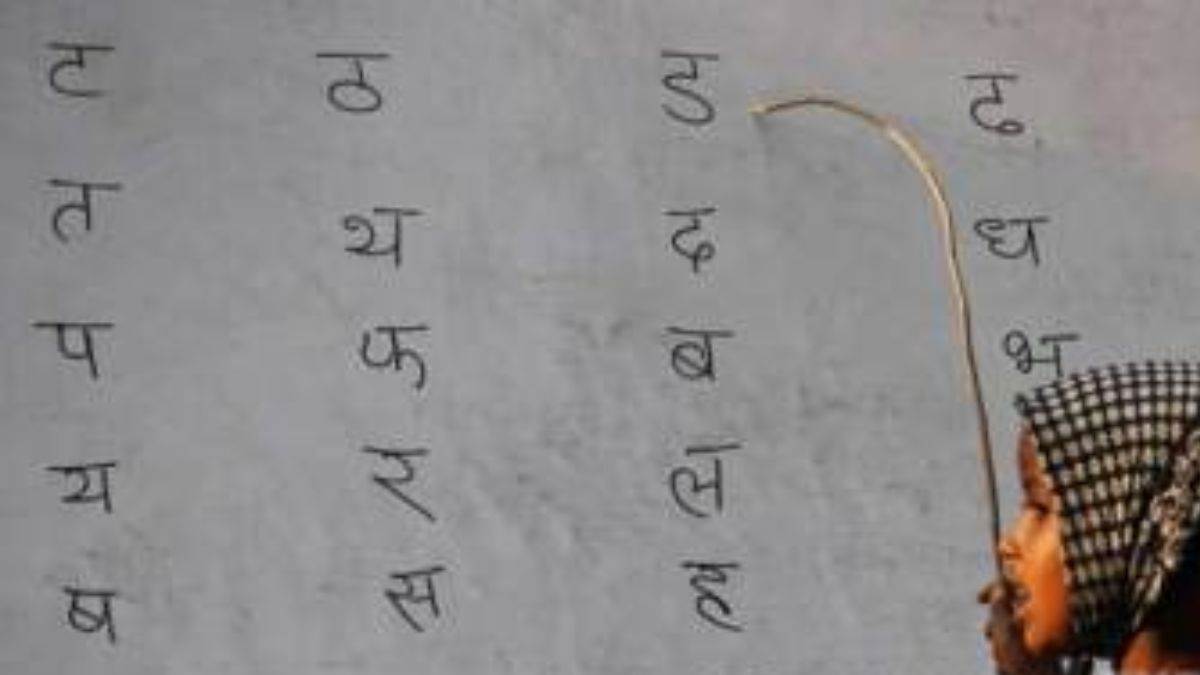 ट ठ ड ढ
त थ द ध
प फ ब भ
य र ल
ष स ह